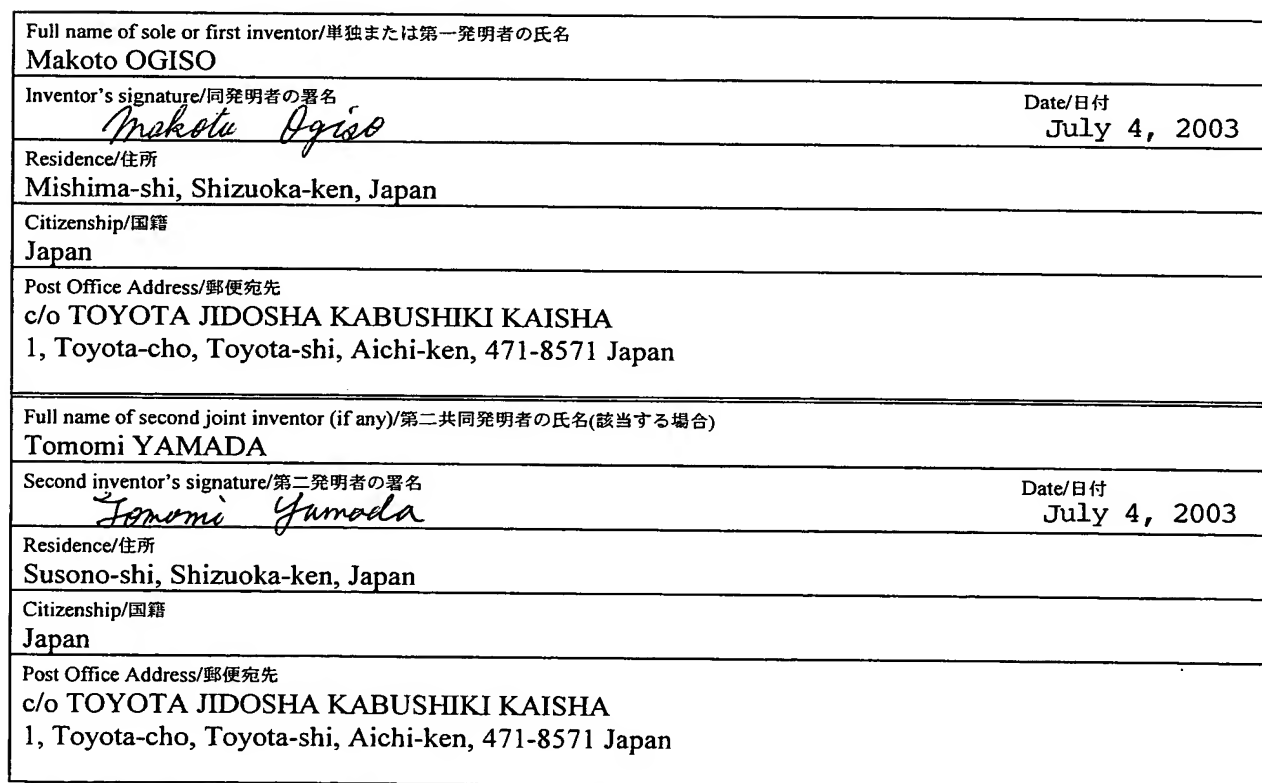 Full name of sole or first inventor/単独または第一発明者の氏名
Makoto OGISO
Inventor's signature/同発明者の署名
Date/日付
Makoto Ogiso
July 4, 2003
Residence/住所
Mishima-shi, Shizuoka-ken, Japan
Citizenship/国籍
Japan
Post Office Address/郵便宛先
c/o TOYOTA JIDOSHA KABUSHIKI KAISHA
1, Toyota-cho, Toyota-shi, Aichi-ken, 471-8571 Japan
Full name of second joint inventor (if any)/第二共同発明者の氏名(該当する場合)
Tomomi YAMADA
Second inventor's signature/第二発明者の署名
Date/日付
Tomomi Yamada
July 4, 2003
Residence/住所
Susono-shi, Shizuoka-ken, Japan
Citizenship/国籍
Japan
Post Office Address/郵便宛先
c/o TOYOTA JIDOSHA KABUSHIKI KAISHA
1, Toyota-cho, Toyota-shi, Aichi-ken, 471-8571 Japan